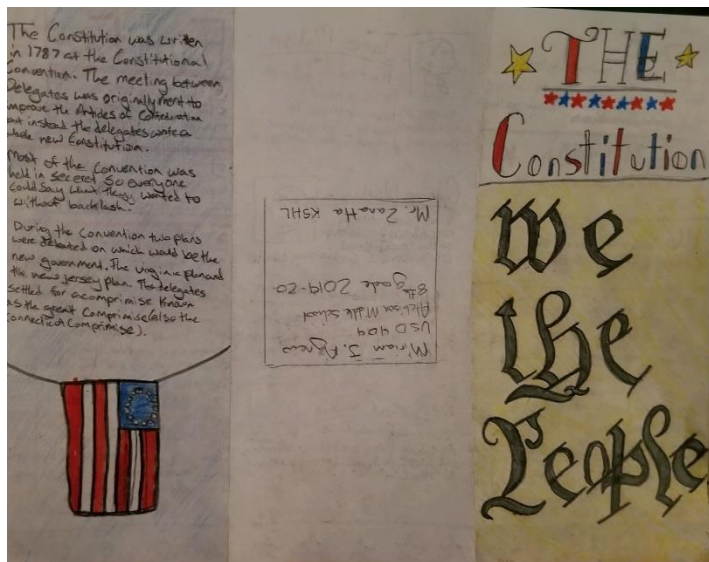 The Constitution was writen
in 1787 at the Constitutional
Convention. The meeting between
Delegates was originally ment to
improve the Articles of Confederation
but instead the delegates wrote a
whole new Constitution.
Most of the Convention was
held in seceret so everyone
could say what they wanted to
without backlash.
During the Convention two plans
were debated on which would be the
new government. The virginia plan and
the new jersey plan. The delegates
settled for a comprimise known
as the great comprimise (also the
connecticot comprimise).
Miriam J. Agnew
USD 409
Atchison Middle School
8th grade 2019-20
Mr. Zanatta KSHL
THE
Constitution
We
the
People